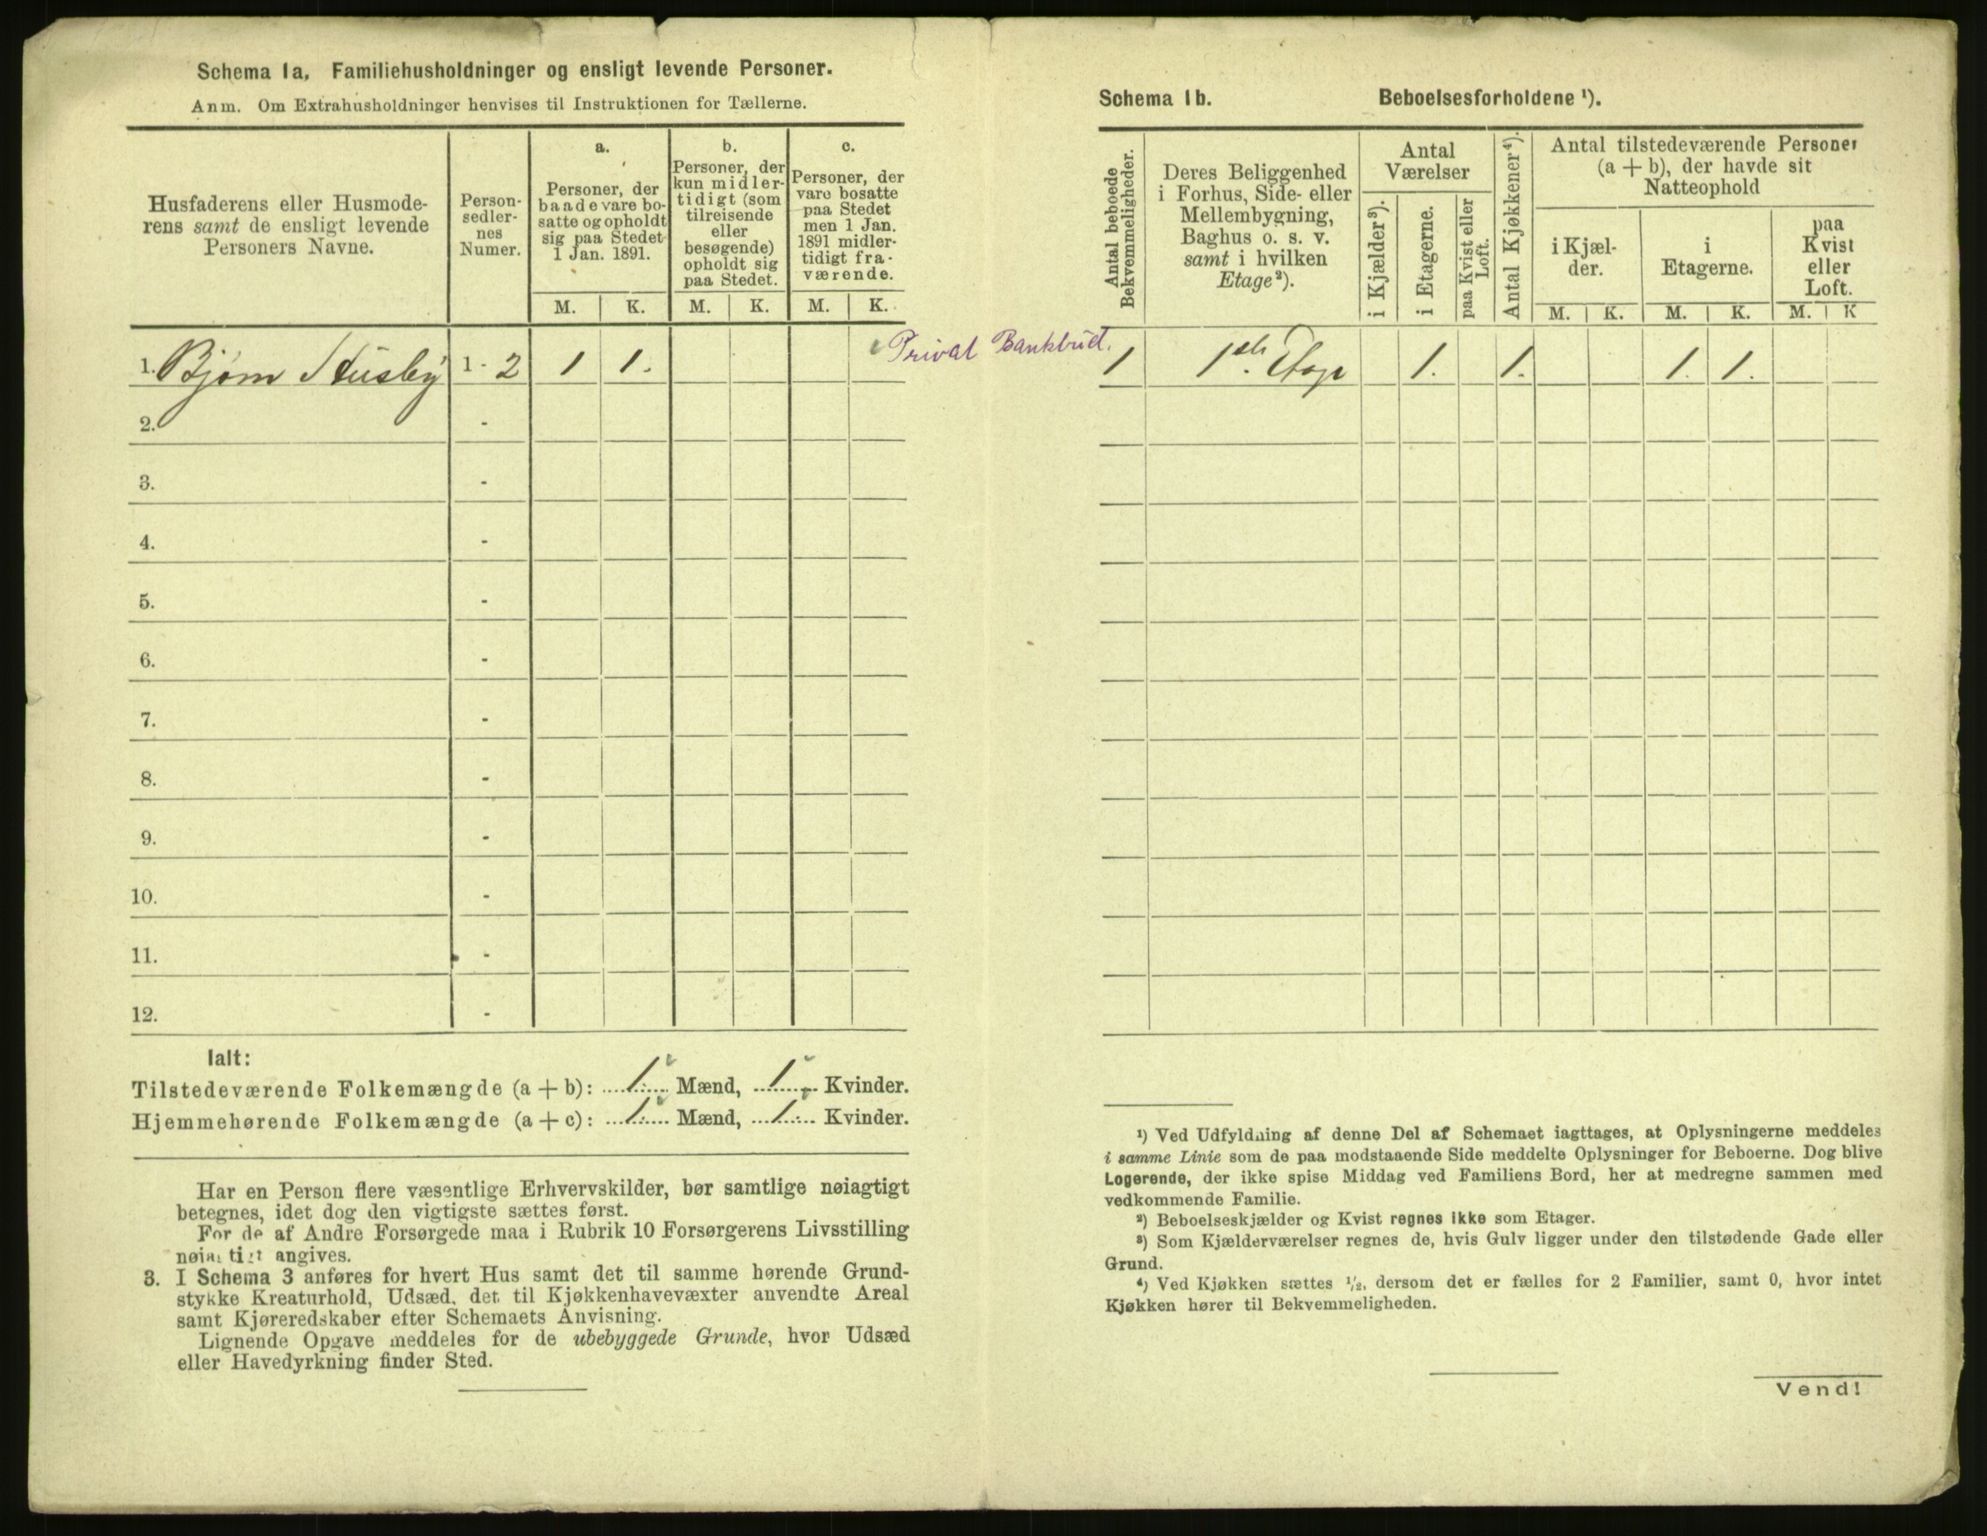 Schema 1a, Familiehusholdninger og ensligt levende Personer.
Anm. Om Extrahusholdninger henvises til Instruktionen for Tællerne.
Husfaderens eller Husmode-
rens samt de ensligt levende
Personers Navne.
Person-
sedler-
nes
Numer.
a.
Personer, der
baade vare bo-
satte og opholdt
sig paa Stedet
1 Jan. 1891.
b.
Personer, der
kun midler-
tidigt (som
tilreisende
eller
besøgende)
opholdt sig
paa Stedet.
c.
Personer, der
vare bosatte
paa Stedet
men 1 Jan.
1891 midler-
tidigt fra-
værende.
M. K. M. K. M. K.
1. Bjørn Husby 1 - 2 1 1.
2. -
3. -
4. -
5. -
6. -
7. -
8. -
9. -
10. -
11. -
12. -
Ialt:
Tilstedeværende Folkemængde (a + b): 1. Mænd, 1. Kvinder.
Hjemmehørende Folkemængde (a + c): 1. Mænd, 1. Kvinder.
Har en Person flere væsentlige Erhvervskilder, bør samtlige nøiagtigt
betegnes, idet dog den vigtigste sættes først.
For de af Andre Forsørgede maa i Rubrik 10 Forsørgerens Livsstilling
nøiagtigt angives.
3. I Schema 3 anføres for hvert Hus samt det til samme hørende Grund-
stykke Kreaturhold, Udsæd, det til Kjøkkenhavevæxter anvendte Areal
samt Kjøreredskaber efter Schemaets Anvisning.
Lignende Opgave meddeles for de ubebyggede Grunde, hvor Udsæd
eller Havedyrkning finder Sted.
Schema 1b. Beboelsesforholdene ¹).
Antal beboede
Bekvemmeligheder.
Deres Beliggenhed
i Forhus, Side- eller
Mellembygning,
Baghus o. s. v.
samt i hvilken
Etage²).
Antal
Værelser
i Kjælder³).
i Etagerne.
paa Kvist eller
Loft.
Antal Kjøkkener⁴).
Antal tilstedeværende Personer
(a + b), der havde sit
Natteophold
i Kjæl-
der.
i
Etagerne.
paa
Kvist
eller
Loft.
M. K. M. K. M. K
Privat Bankbud. 1 1ste Etage 1. 1. 1. 1.
¹) Ved Udfyldning af denne Del af Schemaet iagttages, at Oplysningerne meddeles
i samme Linie som de paa modstaaende Side meddelte Oplysninger for Beboerne. Dog blive
Logerende, der ikke spise Middag ved Familiens Bord, her at medregne sammen med
vedkommende Familie.
²) Beboelseskjælder og Kvist regnes ikke som Etager.
³) Som Kjælderværelser regnes de, hvis Gulv ligger under den tilstødende Gade eller
Grund.
⁴) Ved Kjøkken sættes ½, dersom det er fælles for 2 Familier, samt 0, hvor intet
Kjøkken hører til Bekvemmeligheden.
Vend!